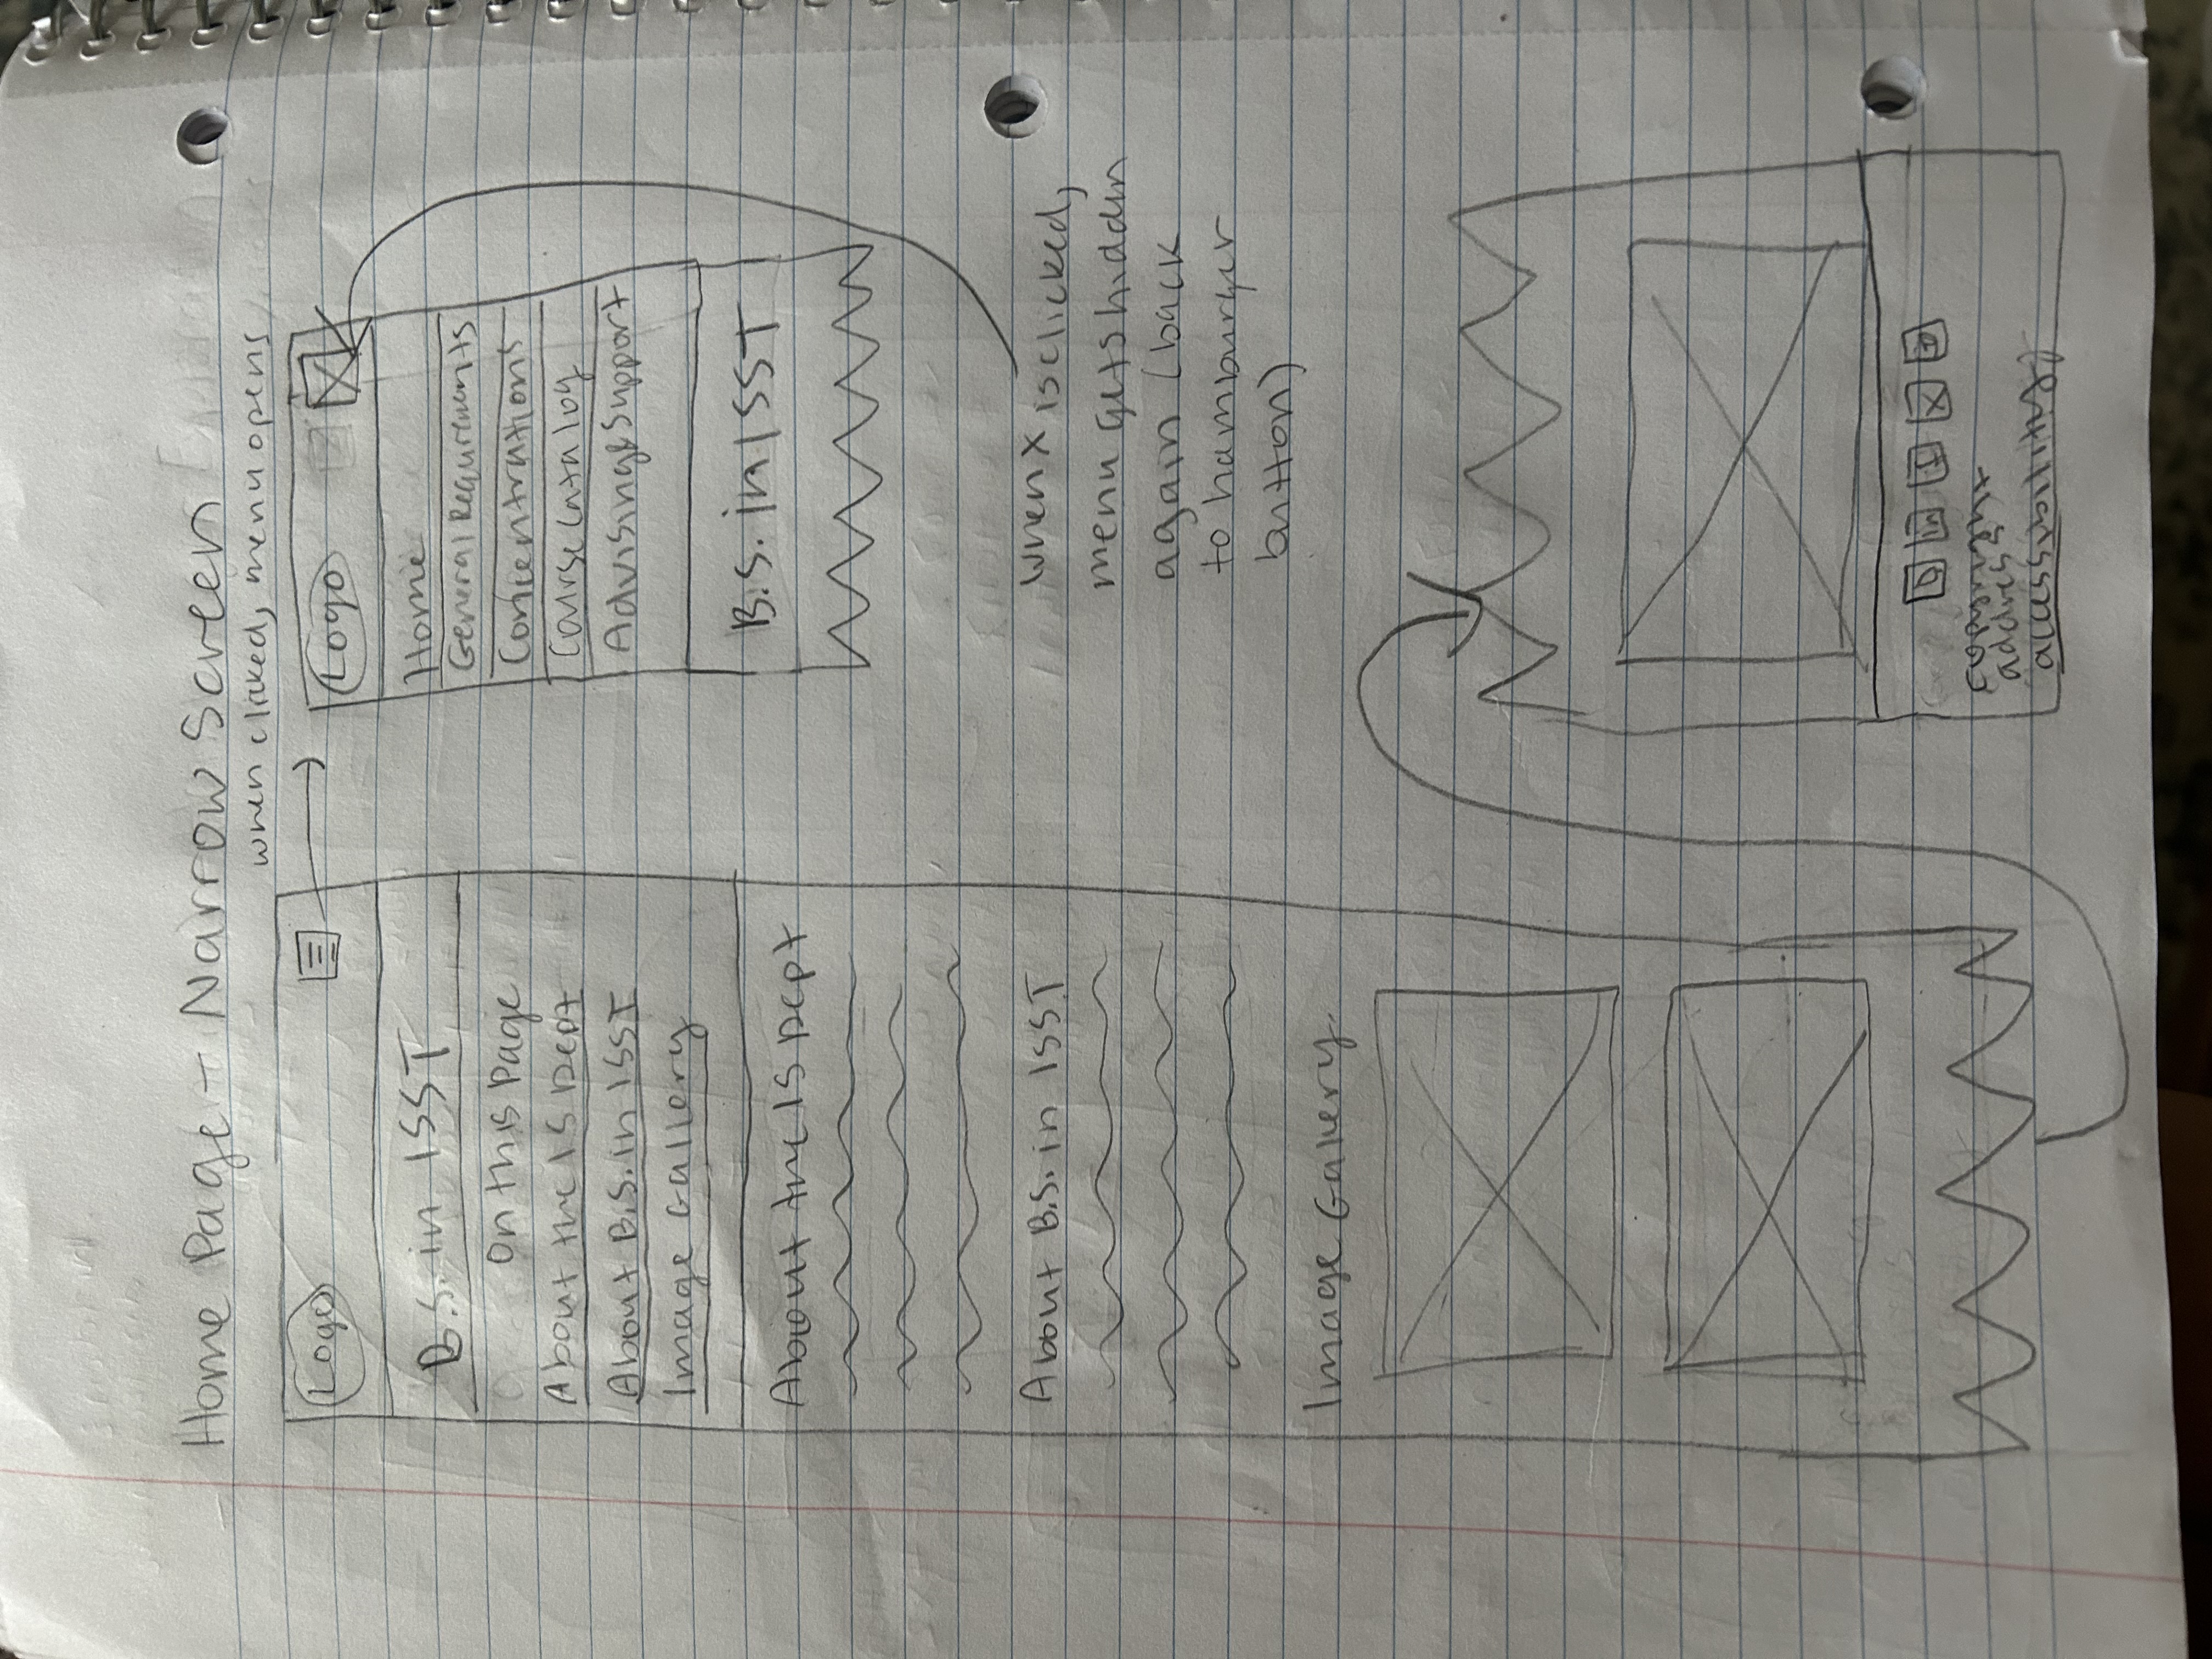 Home Page - Narrow Screen
when clicked, menu opens
Logo
B.S. in ISST
On this Page
About the IS Dept
About B.S. in ISST
Image Gallery
About the IS Dept
About B.S. in ISST
Image Gallery.
Logo
Home
General Requirements
Concentrations
Course Catalog
Advising & Support
B.S. in ISST
when X is clicked,
menu gets hidden
again (back
to hamburger
button)
in f X
copyright
address
accessibility